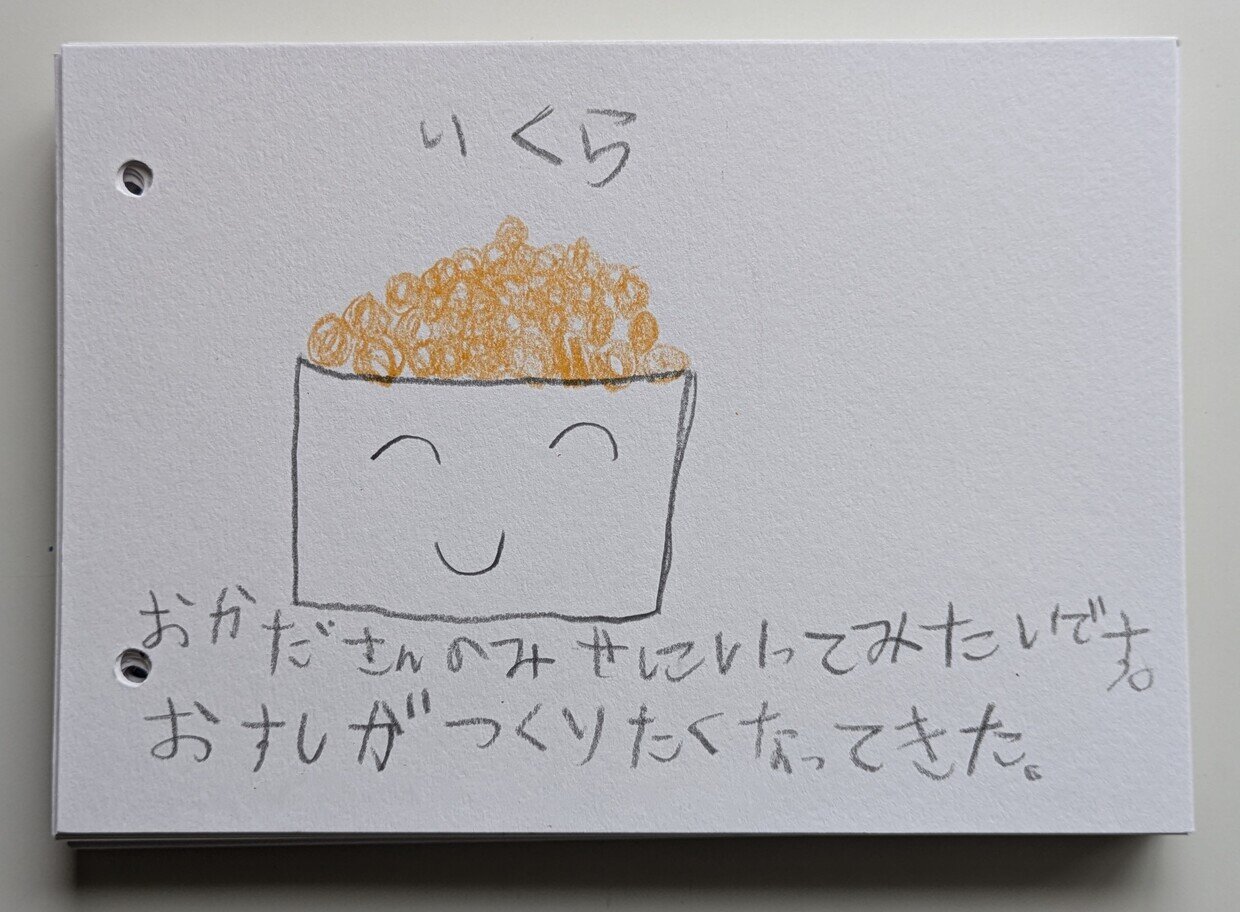 いくら
おかださんのみせにいってみたいです。
おすしがつくりたくなってきた。